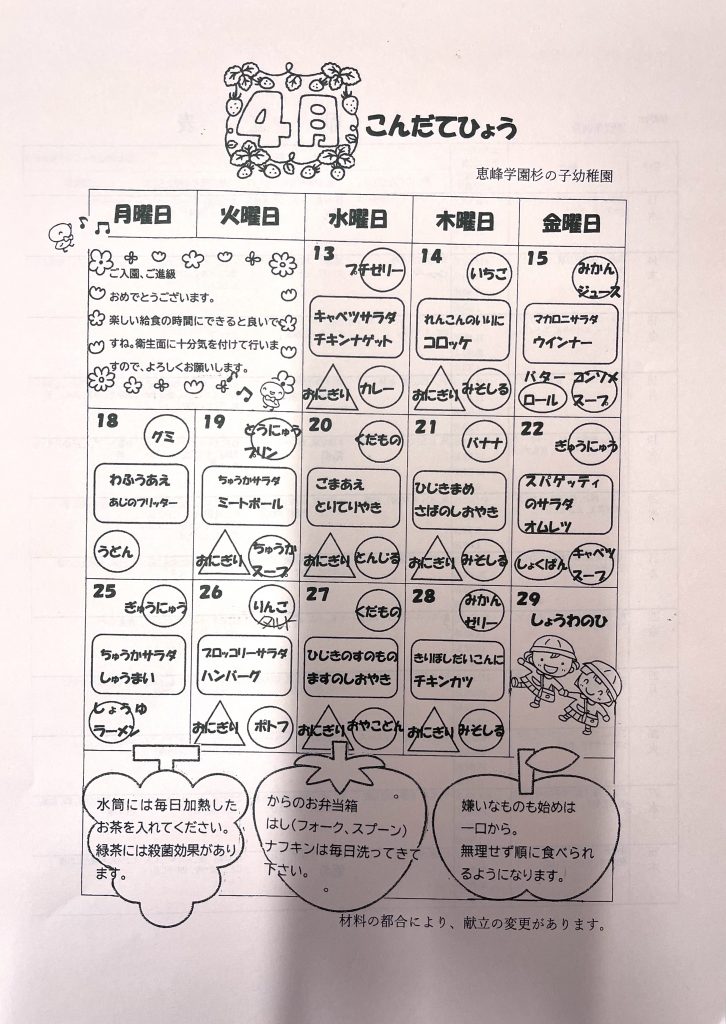 4月
こんだてひょう
恵峰学園杉の子幼稚園
月曜日 火曜日 水曜日 木曜日 金曜日
ご入園、ご進級
おめでとうございます。
楽しい給食の時間にできると良いで
すね。衛生面に十分気を付けて行いま
すので、よろしくお願いします。
13
プチゼリー
キャベツサラダ
チキンナゲット
おにぎり カレー
14
いちご
れんこんのいりに
コロッケ
おにぎり みそしる
15
みかん
ジュース
マカロニサラダ
ウインナー
バター
ロール
コンソメ
スープ
18
グミ
わふうあえ
あじのフリッター
うどん
19
とうにゅう
プリン
ちゅうかサラダ
ミートボール
おにぎり
ちゅうか
スープ
20
くだもの
ごまあえ
とりてりやき
おにぎり とんじる
21
バナナ
ひじきまめ
さばのしおやき
おにぎり みそしる
22
ぎゅうにゅう
スパゲッティ
のサラダ
オムレツ
しょくぱん
キャベツ
スープ
25
ぎゅうにゅう
ちゅうかサラダ
しゅうまい
しょうゆ
ラーメン
26
りんご
ブロッコリーサラダ
ハンバーグ
おにぎり ポトフ
27
くだもの
ひじきのすのもの
ますのしおやき
おにぎり おやこどん
28
みかん
ゼリー
きりぼしだいこんに
チキンカツ
おにぎり みそしる
29
しょうわのひ
水筒には毎日加熱した
お茶を入れてください。
緑茶には殺菌効果があり
ます。
からのお弁当箱
はし(フォーク、スプーン)
ナフキンは毎日洗ってきて
下さい。
嫌いなものも始めは
一口から。
無理せず順に食べられ
るようになります。
材料の都合により、献立の変更があります。